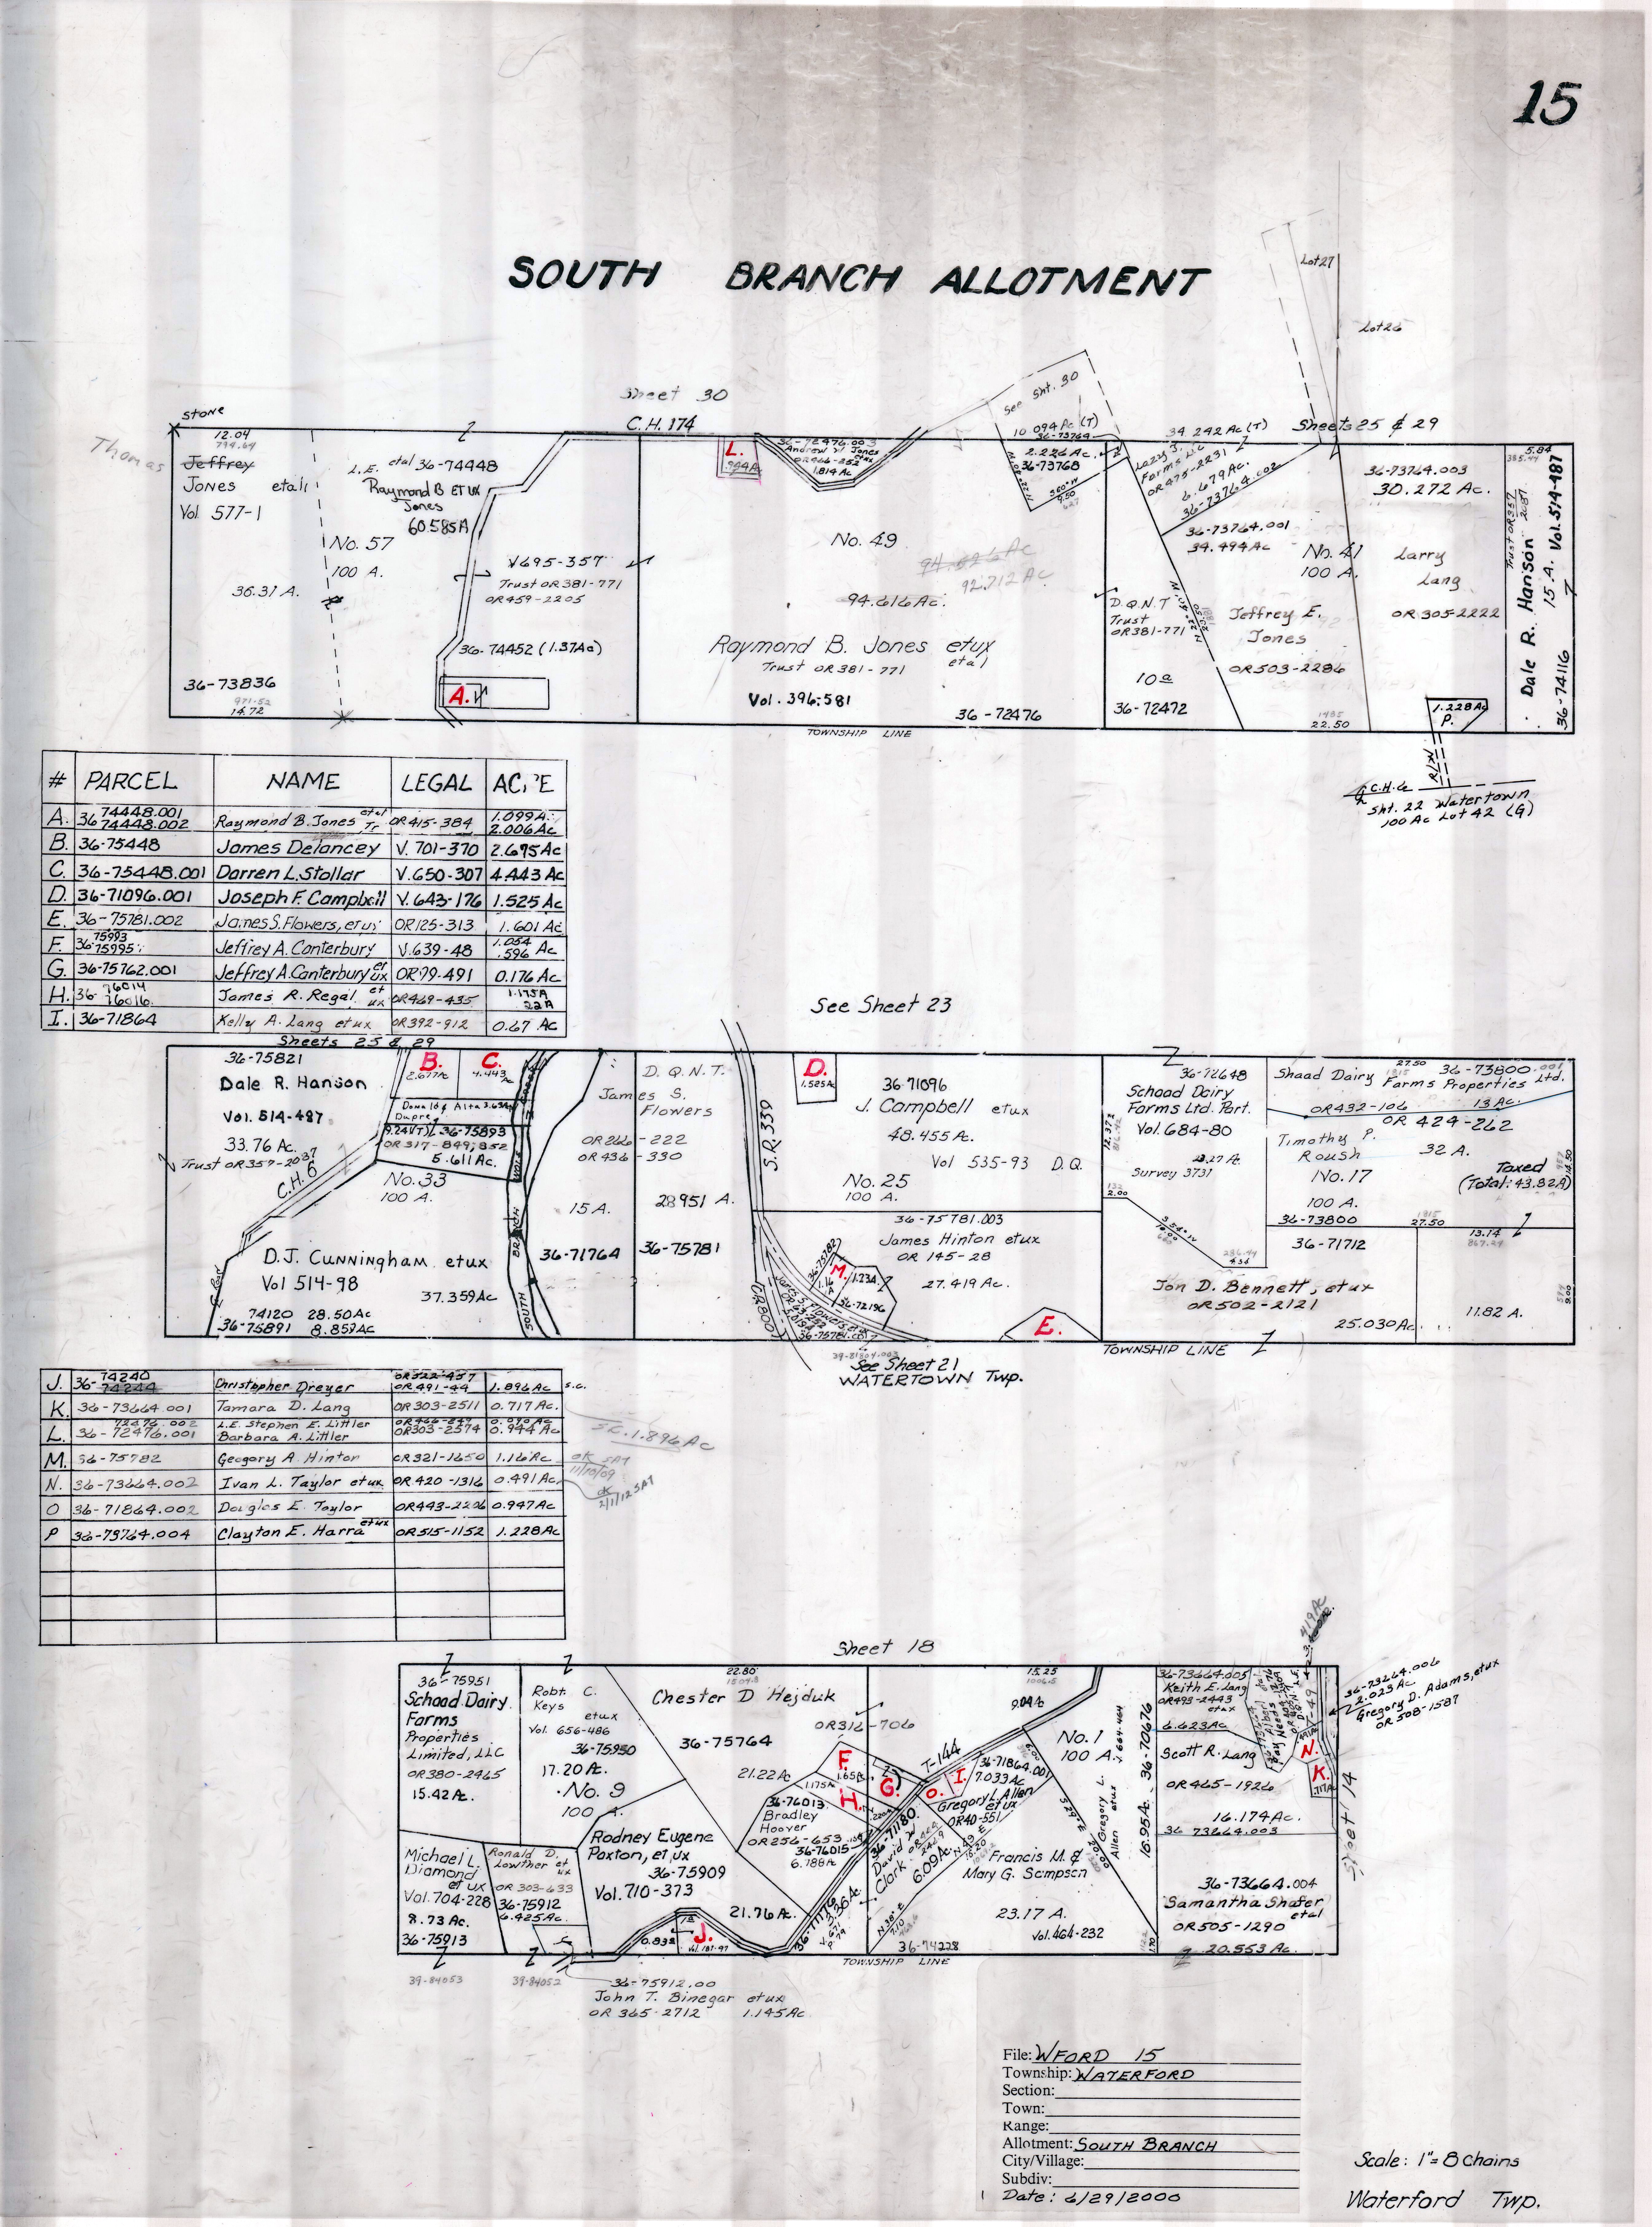 15
SOUTH BRANCH ALLOTMENT
Lot 27
Lot 26
Sheet 30
C.H. 174
Sheets 25 & 29
STONE
Thomas
12.04
794.64
Jeffrey
JONES etal
Vol 577-1
36.31 A.
36-73836
971.52
14.72
L.E. etal 36-74448
Raymond B ET UX
Jones
60.585A
No. 57
100 A.
V695-357
Trust OR381-771
OR459-2205
36-74452 (1.37Ac)
A.
L.
.944A
36-72476.003
Andrew W Jones
etux
OR466-252
1.814 Ac
No. 49
94.626Ac
92.712 Ac
94.616Ac.
Raymond B. Jones etux
etal
Trust OR381-771
Vol. 396-581
36-72476
TOWNSHIP LINE
See Sht. 30
10.094 Ac (T)
36-73764
2.226 Ac.
36-73768
34.242 Ac (T)
Lazy J.
Farms LLC
OR475-2231
6.679 Ac.
36-73764.002
36-73764.001
34.494Ac
No. 41
100 A.
D.Q.N.T
Trust
OR381-771
10 a
36-72472
Jeffrey E.
Jones
OR503-2286
1485
22.50
36-73764.003
30.272 Ac.
Larry
Lang
OR305-2222
1.228Ac
P.
5.84
385.44
Dale R. Hanson
Trust OR357
2087
15. A. Vol. 514-487
36-74116
R/W
C.H.6
Sht. 22 Watertown
100 Ac Lot 42 (G)
# PARCEL NAME LEGAL AC.'E
A. 36 74448.001 74448.002 Raymond B. Jones etal Tr OR415-384 1.099A. 2.006Ac
B. 36-75448 James Delancey V. 701-370 2.695Ac
C. 36-75448.001 Darren L. Stollar V.650-307 4.443 Ac
D. 36-71096.001 Joseph F. Campbell V.643-176 1.525 Ac
E. 36-75781.002 James S. Flowers, etux OR125-313 1.601 Ac
F. 36 75993 75995 Jeffrey A. Canterbury V.639-48 1.054 .596 Ac
G. 36-75762.001 Jeffrey A. Canterbury et ux OR79-491 0.176 Ac
H. 36- 76014 76016 James R. Regal et ux OR469-435 1.175A .22A
I. 36-71864 Kelly A. Lang etux OR392-912 0.67 Ac
See Sheet 23
Sheets 25 & 29
36-75821
Dale R. Hanson
Vol. 514-487
33.76 Ac.
Trust OR357-2087
C.H. 6
B.
2.677Ac
C.
4.443 Ac
Donald & Alta
Dupre
9.24(T) 36-75893
OR317-849;852
5.611 Ac.
No. 33
100 A.
D.J. CUNNINGHAM etux
Vol 514-98
37.359Ac
74120 28.50Ac
36-75891 8.859Ac
SOUTH BRANCH WOLF CREEK
James S.
Flowers
D.Q.N.T.
OR266-222
OR436-330
15 A.
28.951 A.
36-71764
36-75781
S.R. 339
OR800
D.
1.525A
36-71096
J. Campbell etux
48.455 Ac.
Vol 535-93 D.Q.
No. 25
100 A.
36-75781.003
James Hinton etux
OR 145-28
27.419 Ac.
36-75782
M.
1.16 A
1.23A.
36-72196
E.
39-81804.003
See Sheet 21
WATERTOWN Twp.
TOWNSHIP LINE
36-72648
Schaad Dairy
Farms Ltd. Part.
Vol. 684-80
23.27 Ac.
Survey 3731
12.372
132
2.00
27.50
1815
36-73800.001
Shaad Dairy Farms Properties Ltd.
OR432-106 13 Ac.
OR 424-262
Timothy P.
Roush
32 A.
No. 17
100 A.
Taxed
(Total: 43.82A)
36-73800
1815
27.50
36-71712
13.14
867.24
Jon D. Bennett, etux
OR502-2121
25.030Ac.
11.82 A.
286.44
4.34
J. 36- 74240 74244 Christopher Dreyer OR322-457 OR491-44 1.896Ac s.c.
K. 36-73664.001 Tamara D. Lang OR303-2511 0.717 Ac.
L. 36- 72476.002 72476.001 L.E. Stephen E. Littler Barbara A. Littler OR303-2574 0.944 Ac
M. 36-75782 Geogory A. Hinton OR321-1650 1.16 Ac
N. 36-73664.002 Ivan L. Taylor etux OR420-1316 0.491Ac
O 36-71864.002 Douglas E. Taylor OR443-2206 0.947Ac
P 36-73764.004 Clayton E. Harra etux OR515-1152 1.228Ac
S.C. 1.896Ac
OK SAT
11/10/09
OK
2/1/12 SAT
Sheet 18
36-75951
Schaad Dairy
Farms
Properties
Limited, LLC
OR380-2465
15.42 Ac.
Michael L.
Diamond
et ux
Vol. 704-228
8.73 Ac.
36-75913
39-84053
Ronald D.
Lowther et
ux
OR 303-633
36-75912
6.425Ac.
39-84052
Robt. C.
Keys
etux
Vol. 656-486
36-75950
17.20 Ac.
No. 9
100 A.
22.80
1504.8
Chester D. Hejduk
OR312-706
36-75764
21.22 Ac
Rodney Eugene
Paxton, et ux
36-75909
Vol. 710-373
21.76 Ac.
0.832
J.
Vol. 187-97
F.
1.65Ac
1.175A
H.
G.
36-76013
Bradley
Hoover
OR256-653
36-76015
6.788Ac
36-71180
David W
Clark
6.09Ac
T-144
O.
I.
36-71864.001
7.033Ac
Gregory L. Allen
et ux
OR40-551
Francis M. &
Mary G. Sampson
23.17 A.
Vol. 464-232
36-74228
TOWNSHIP LINE
15.25
1006.5
9.04 Ac
No. 1
100 A.
Gregory L.
Allen
etux
V. 664-464
16.95 Ac.
36-70676
36-73664.005
Keith E. Lang
OR493-2443
etux
6.623Ac
Scott R. Lang
OR465-1926
16.174Ac
36 73664.003
36-73664.004
Samantha Shafer
etal
OR505-1290
20.553 Ac.
N.
K.
.717A
T-49
.419Ac
36-73664.006
2.023 Ac
Gregory D. Adams, etux
OR 508-1587
Sheet 14
36-75912.00
John T. Binegar etux
OR 365-2712 1.145Ac
File: WFORD 15
Township: WATERFORD
Section:
Town:
Range:
Allotment: SOUTH BRANCH
City/Village:
Subdiv:
Date: 6/29/2000
Scale: 1"= 8 Chains
Waterford Twp.